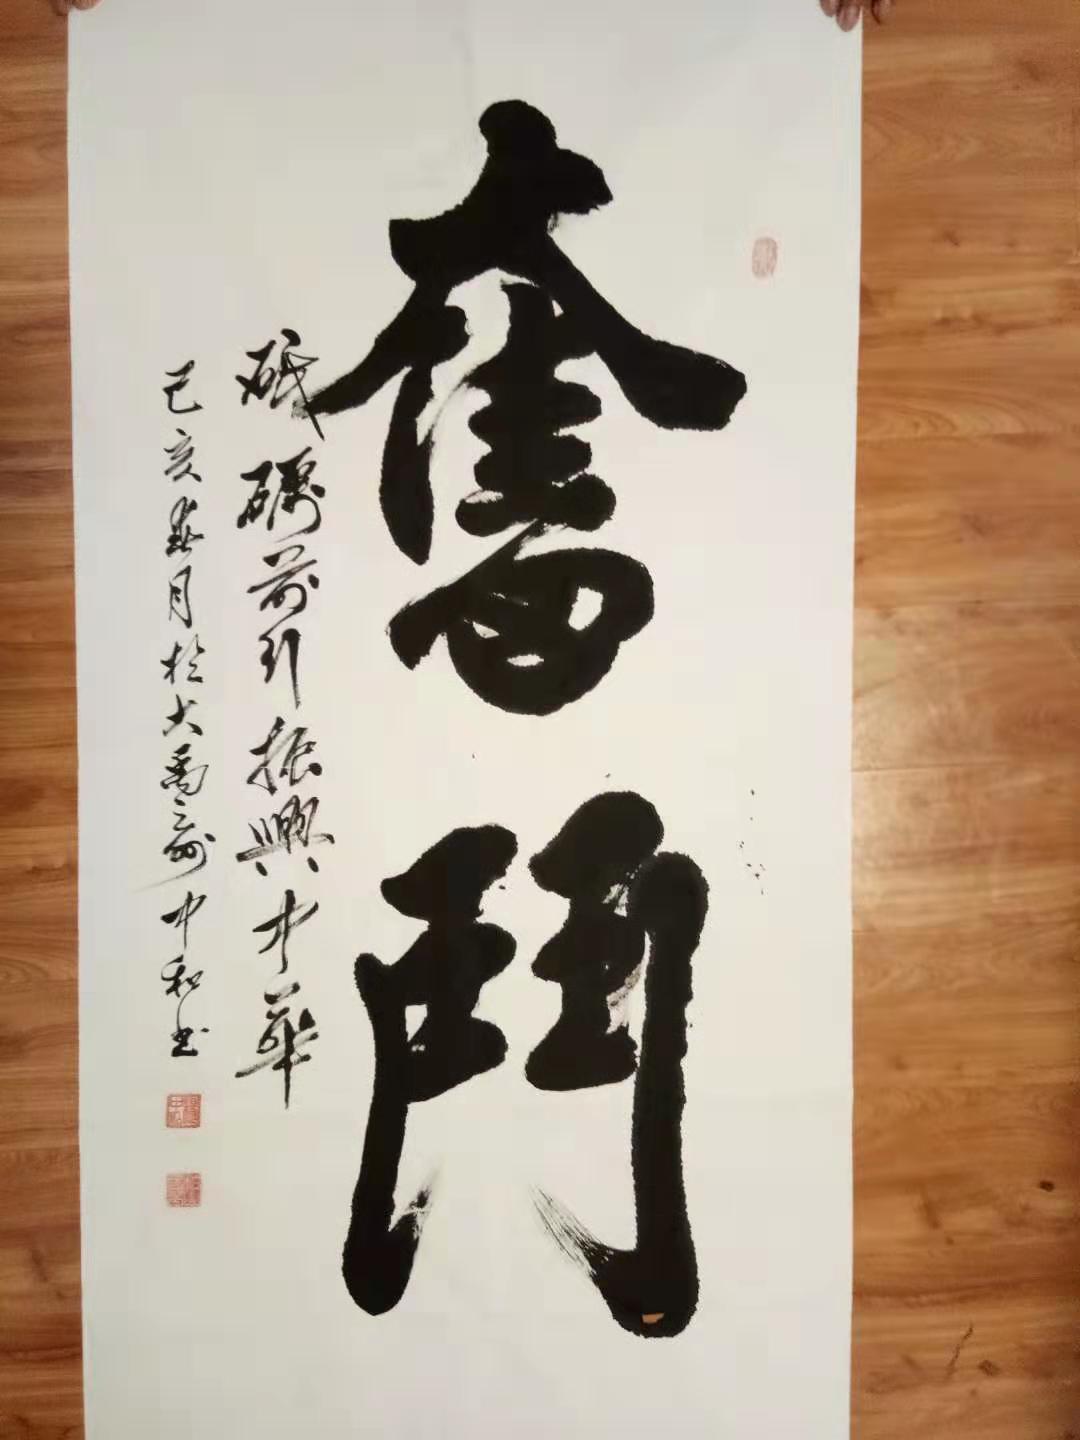 奮鬥
砥礪前行振興中華
己亥春月於大禹齋中和书